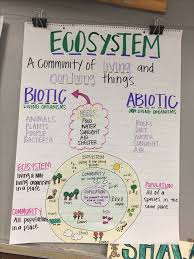 ECOSYSTEM
A Community of living and
nonliving things
BIOTIC
LIVING ORGANISMS
ANIMALS
PLANTS
PEOPLE
BACTERIA
NEEDS
FOOD
WATER
SUNLIGHT
AIR
SHELTER
ABIOTIC
NON LIVING ORGANISMS
ROCKS
DIRT
WATER
SUNLIGHT
AIR
ECOSYSTEM
living & non
living organisms
in a place
COMMUNITY
All populations
in a place
ECOSYSTEM
COMMUNITY
POPULATION
POPULATION
All of a
species in the
same place